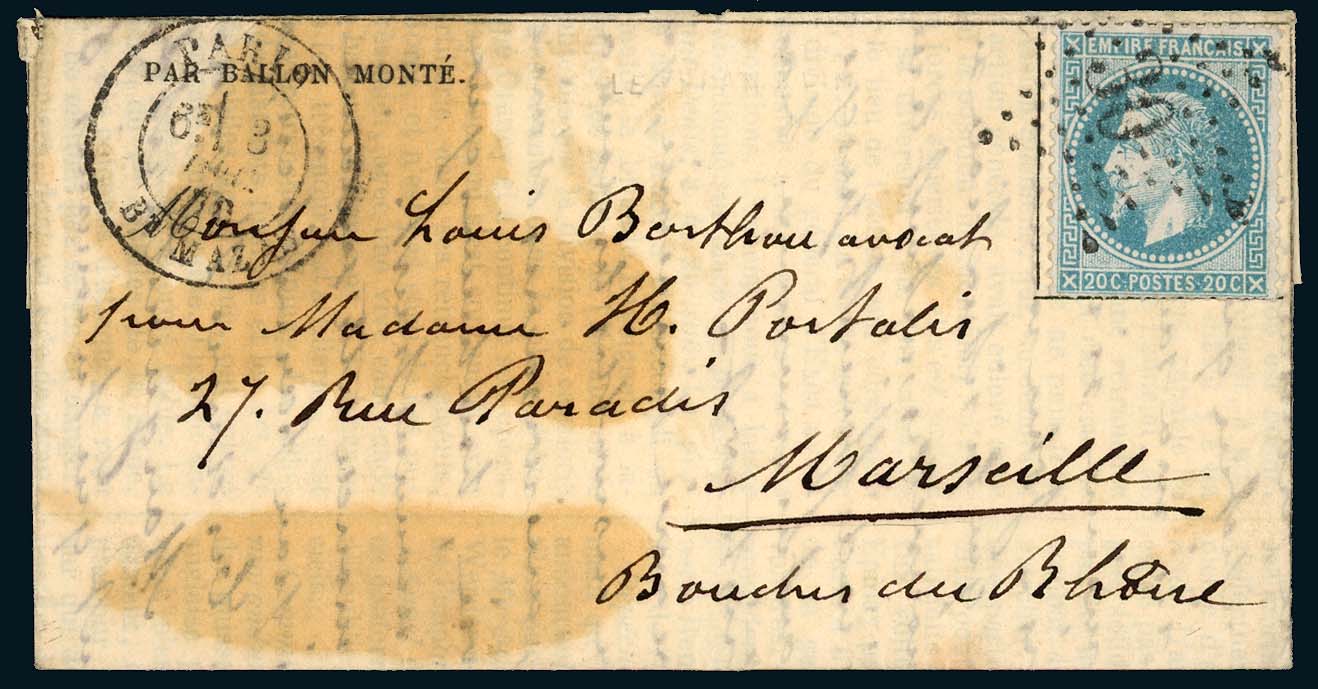 PARIS
PAR BALLON MONTÉ.
6E/ 3
BD MALESH
EMPIRE FRANÇAIS
20C·POSTES·20C
Monsieur Louis Berthou avocat
pour Madame H. Portalis
27. Rue Paradis
Marseille
Bouches du Rhône